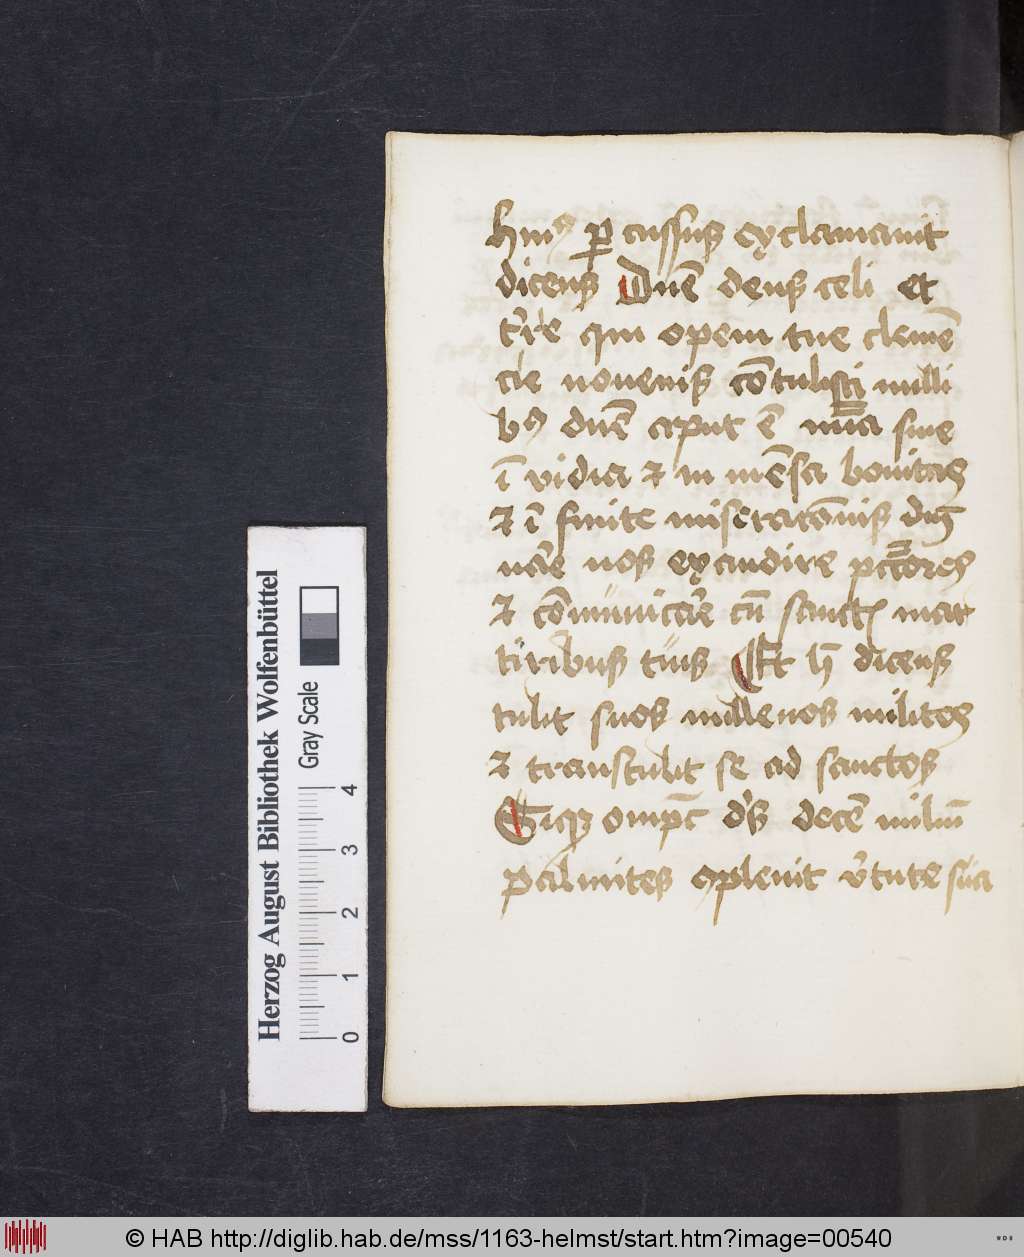 huiꝰ ꝑcussus exclamauit
dicens Dn̄e deus celi et
tr̄re qui opem tue clemē
cie nouenis cōtulisti milli
bꝰ dn̄e aput ē mīa sine
ī vidia ⁊ in mēsa bonitas
⁊ ī finite miseracōnis dig
nare nos exaudire pctōres
⁊ cōmunicare cū sanctis mar
tiribus tuis Et h̄ dicens
tulit suos mille nos milites
⁊ transtulit se ad sanctos
Sicqꝫ omp̄c dꝰs decē miliū
palmites cpleuit v̓tute sua
Herzog August Bibliothek Wolfenbüttel
Gray Scale
0 1 2 3 4
© HAB http://diglib.hab.de/mss/1163-helmst/start.htm?image=00540